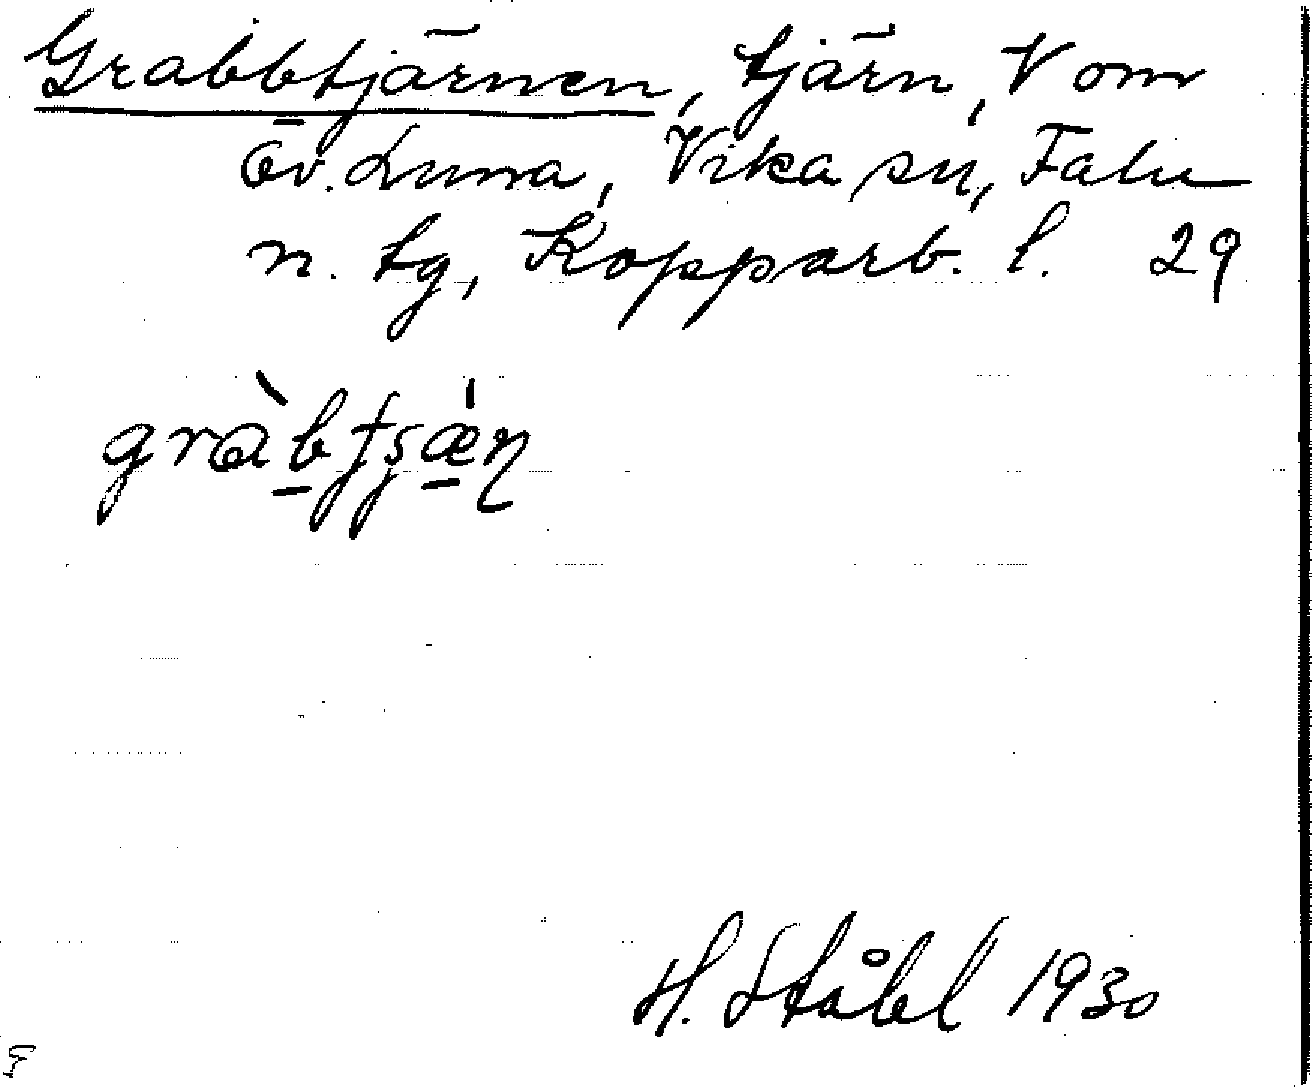 Grabbtjärnen, tjärn, V om
Öv. Lurna, Vika sn, Falu
n. tg, Kopparb. l. 29
H. Ståhl 1930